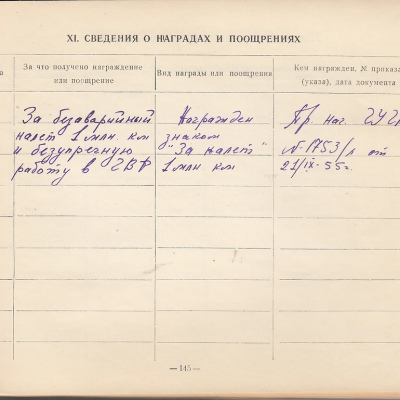 XI. СВЕДЕНИЯ О НАГРАДАХ И ПООЩРЕНИЯХ
За что получено награждение или поощрение
Вид награды или поощрения
Кем награжден, № приказа (указа), дата документа
За безаварийный
налет 1 млн. км
и безупречную
работу в ГВФ
Награжден
знаком
"За налет"
1 млн км
Пр. нач. ГУГ
№ 1753/л от
21/IX-55г.
— 145 —